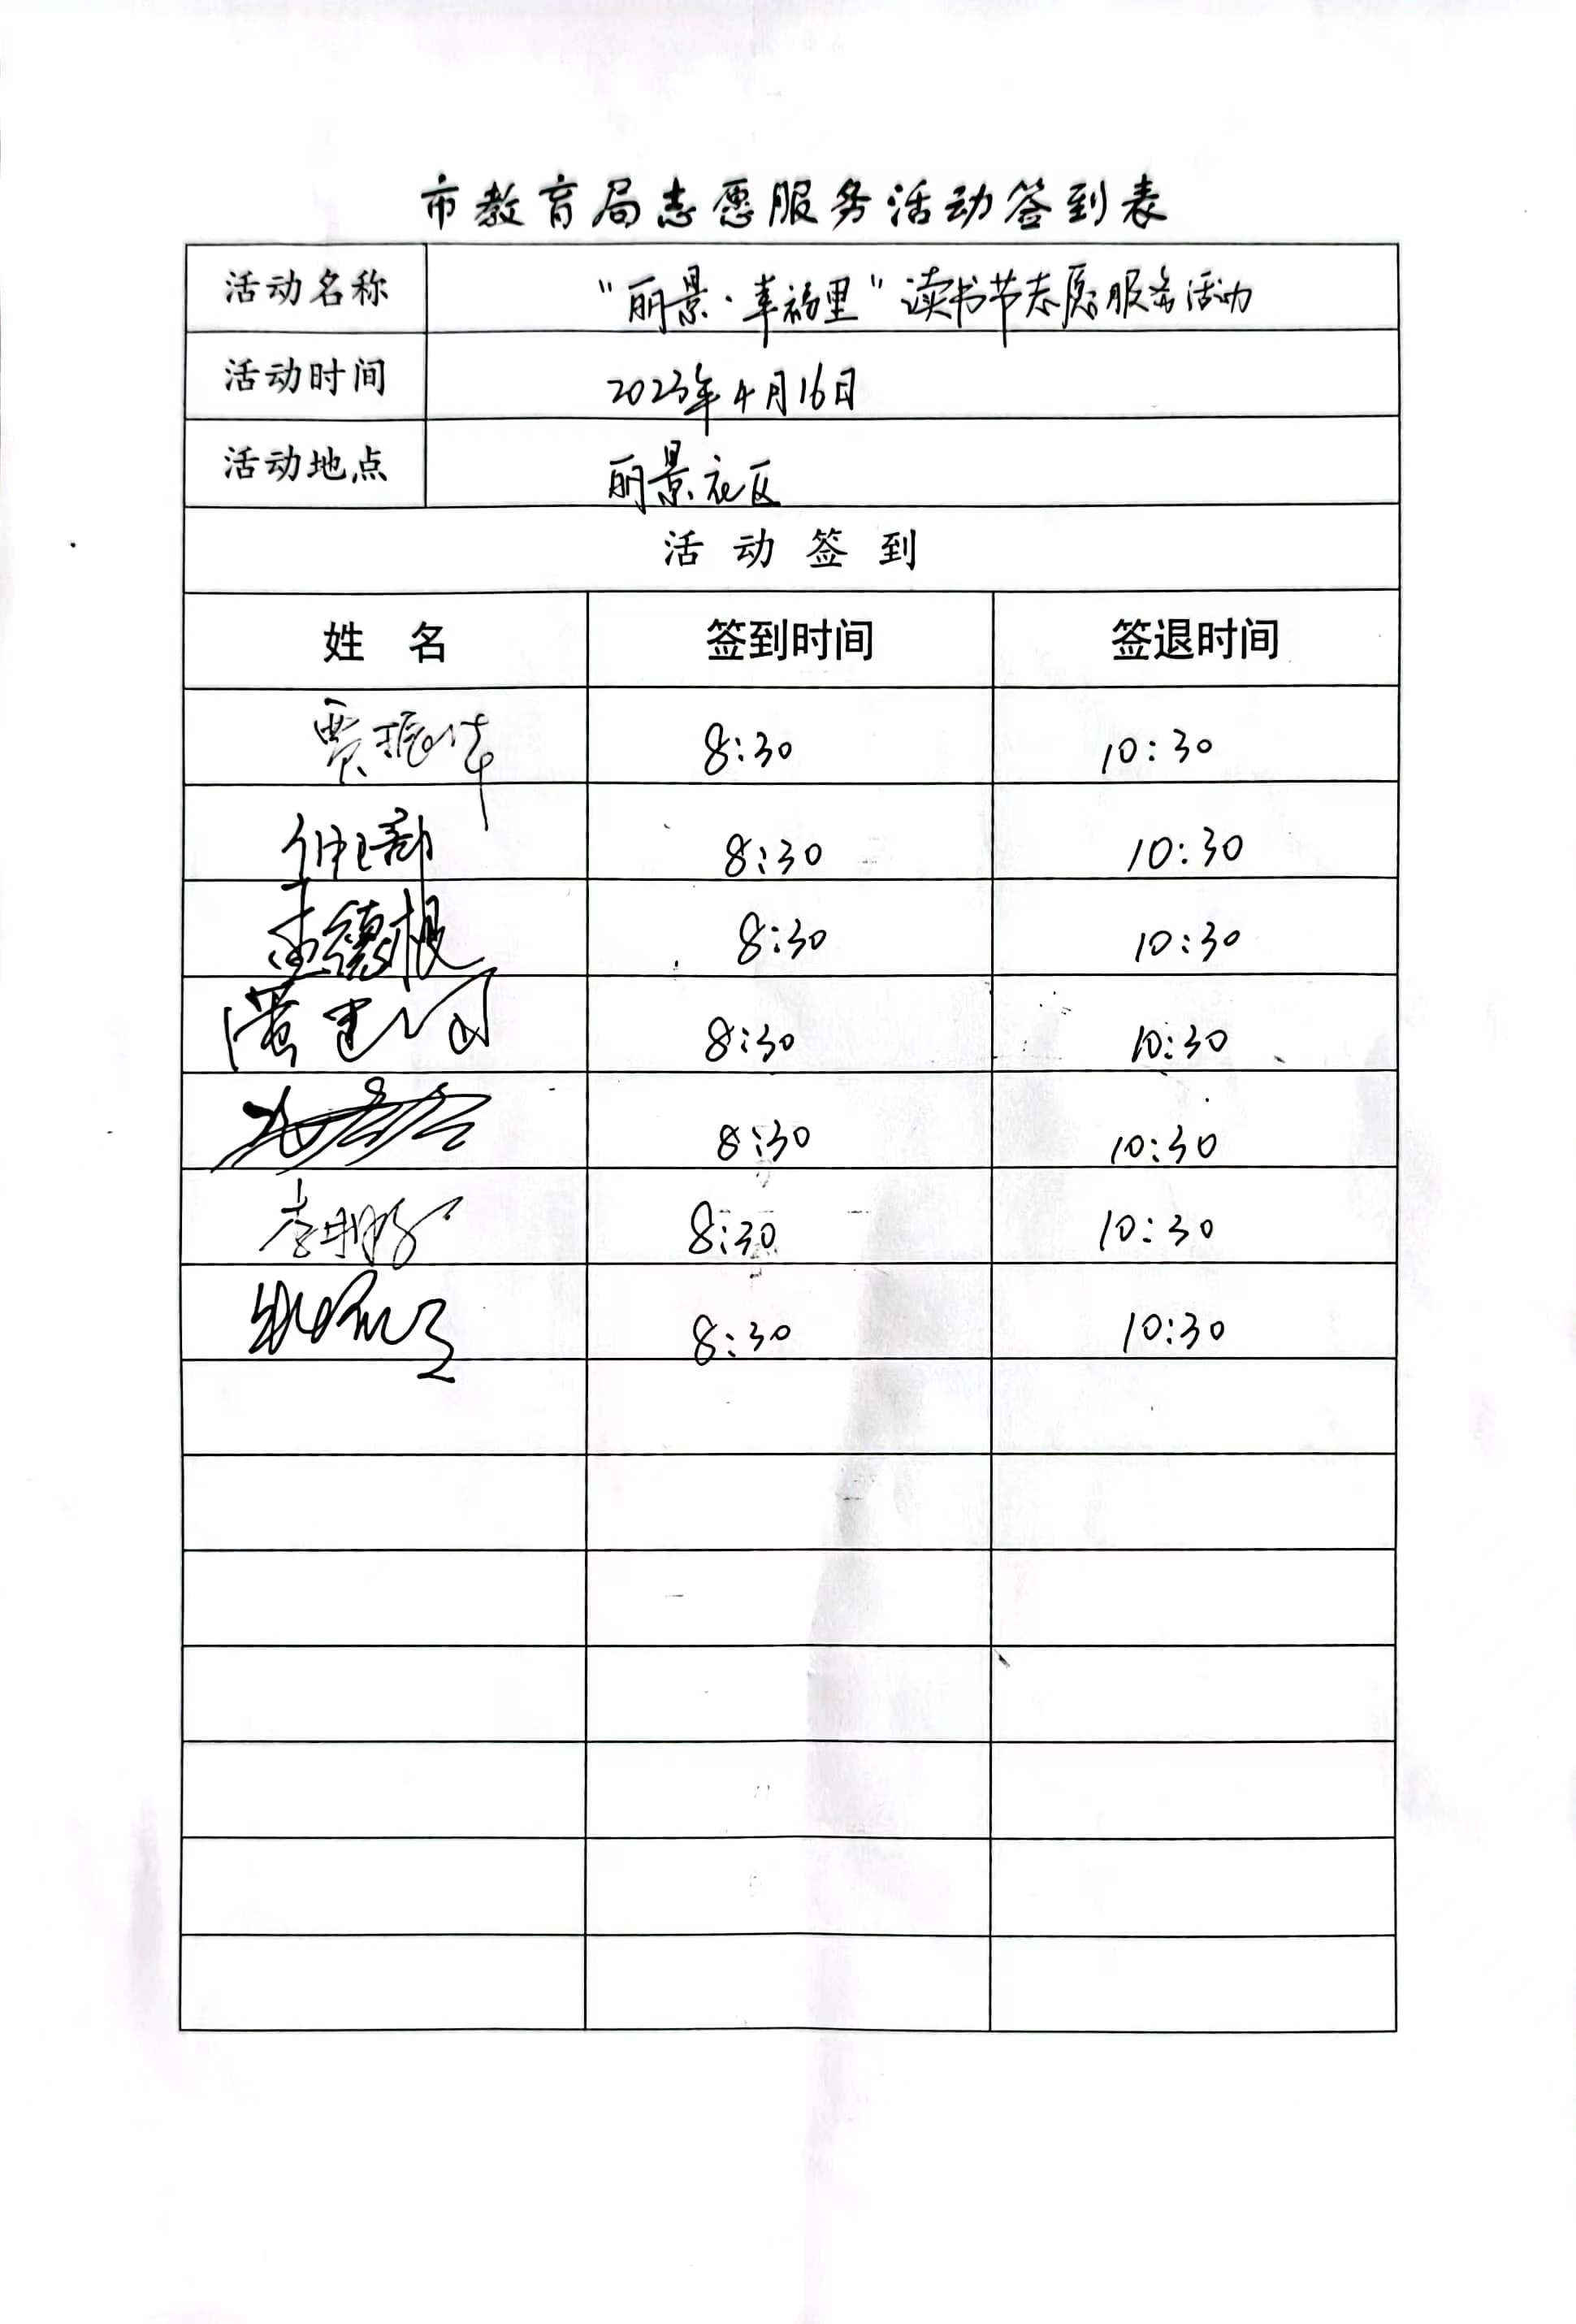 市教育局志愿服务活动签到表
活动名称 "丽景·幸福里"读书节志愿服务活动
活动时间 2023年4月16日
活动地点 丽景社区
活动签到
姓 名 签到时间 签退时间
贾振华 8:30 10:30
8:30 10:30
德根 8:30 10:30
8:30 10:30
8:30 10:30
李 8:30 10:30
8:30 10:30